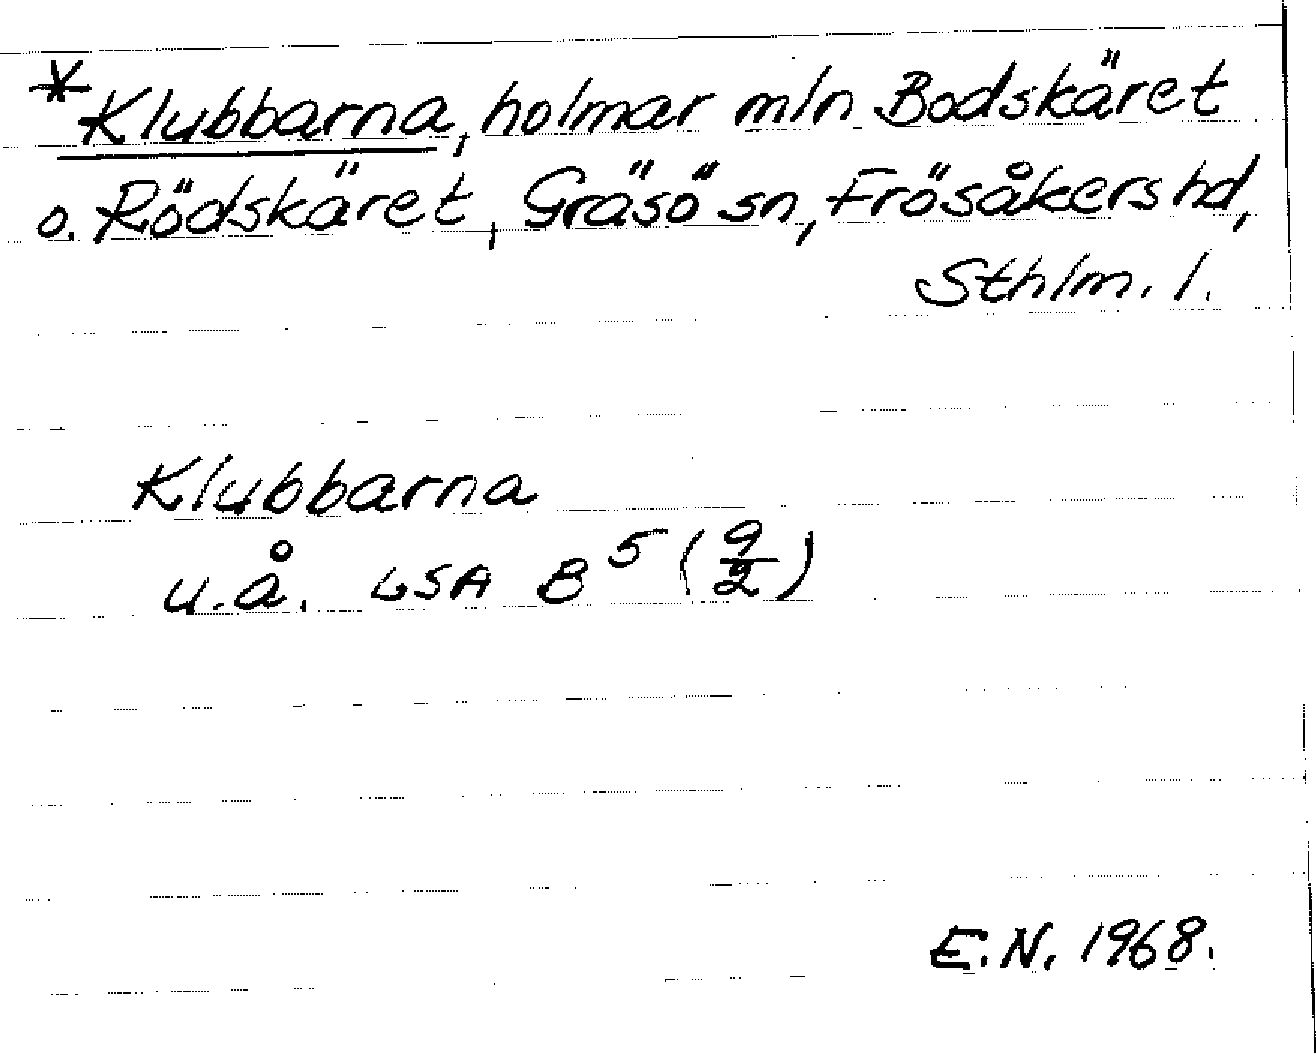 *Klubbarna, holmar mln Bodskäret
o. Rödskäret, Gräsö sn, Frösåkers hd,
Sthlm. l.
Klubbarna
u.å. LSA B⁵ (9/2)
E.N. 1968.